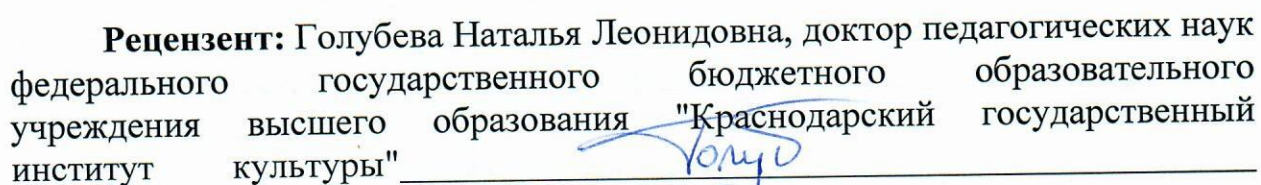 Рецензент: Голубева Наталья Леонидовна, доктор педагогических наук
федерального государственного бюджетного образовательного
учреждения высшего образования "Краснодарский государственный
институт культуры"